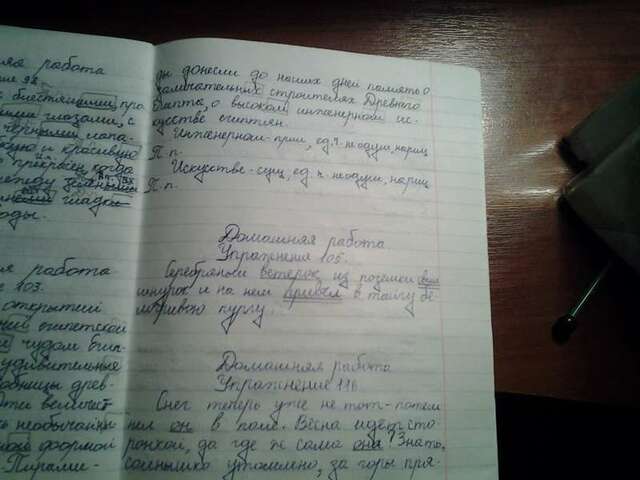 няя работа
ие 98.
с блестящими про
ыми глазами, с
чёрными лапа-
кую и красивую
прекрасен когда
между зелёными
гладко
оды.
няя работа
е 103.
открытий
египетской
чудом Егип-
удивительные
обницы древ-
Эти величест
ь необычайн
ной формой
Пирами-
ды донесли до наших дней память о
замечательных строителях Древнего
Египта, о высоком инженерном ис-
кусстве египтян.
Инженерном-прил, ед.ч. неодуш, нариц
П.п.
Искусстве-сущ, ед.ч. неодуш, нариц
П.п.
Домашняя работа
Упражнения 105.
Серебряный ветерок из позёмки свил
шнурок и на нём привёл в тайгу бе
шную пургу.
Домашняя работа
Упражнение 116.
Снег теперь уже не тот-потем
нел он в поле. Весна идёт сто
ронкой, да где ж сама она? Знать,
солнышко утомлено, за горы пря-